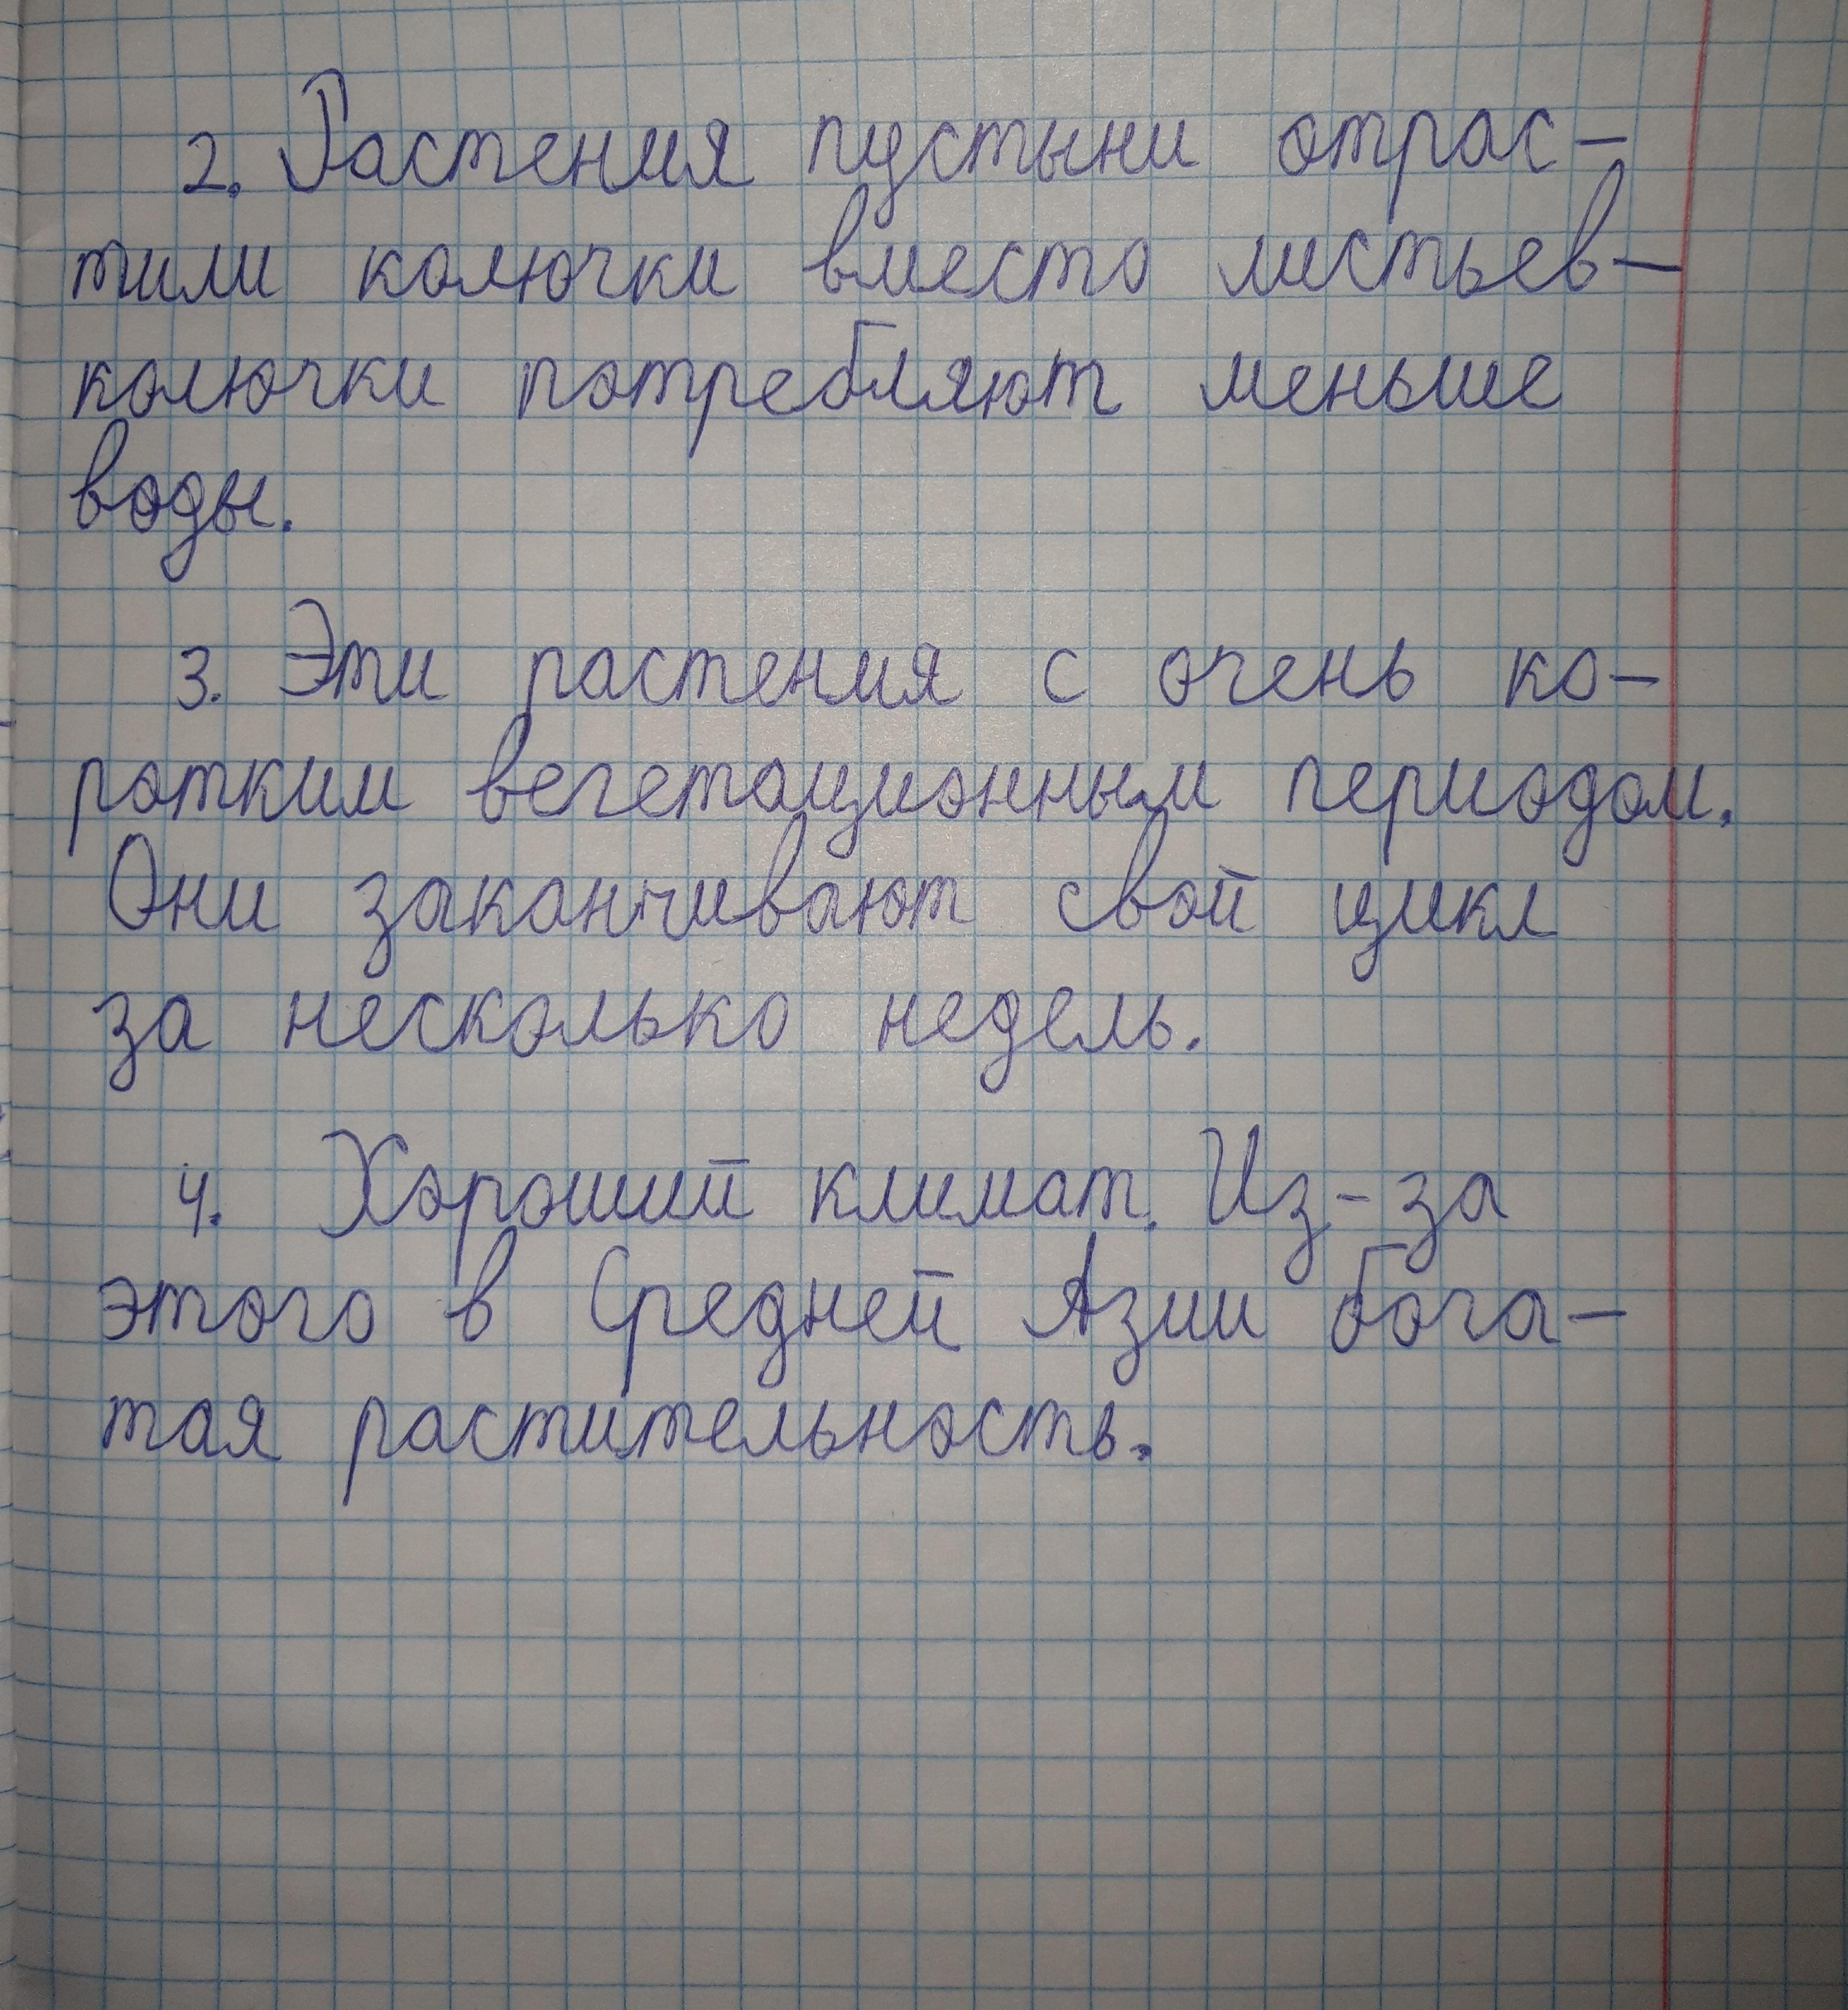 2. Растения пустыни отрас-
тили колючки вместо листьев-
колючки потребляют меньше
воды.
3. Эти растения с очень ко-
ротким вегетационным периодом.
Они заканчивают свой цикл
за несколько недель.
4. Хороший климат. Из-за
этого в Средней Азии бога-
тая растительность.